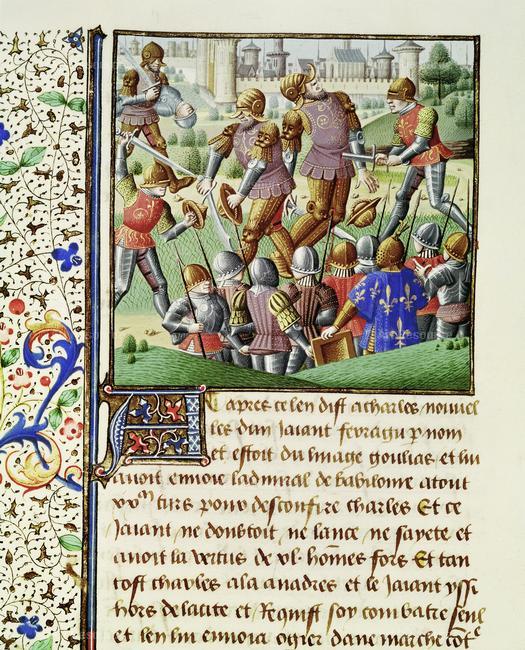 Et apres ce len dist a charles nouvel
les dun Jaiant feuragu p nom
et estoit du linage goulias, et lui
auoit enuoie ladmiral de babiloine atout
xxᵐ turs pour desconfire charles Et ce
Jaiant ne doubtoit ne lance ne sayete et
auoit la vertus de xl. hom̃es fors Et tan
tost charles ala a nadres et le Jaiant yssi
hors de la cite et Requist soy combatre seul
et len lui enuoia ogier dane marche